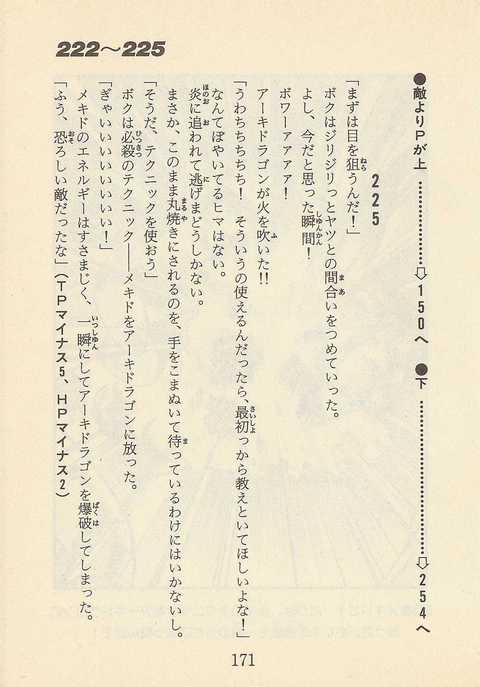 222〜225
●敵よりＰが上 ……………⇨150へ ●下 ……………⇨254へ
225
「まずは目を狙うんだ！」
ボクはジリジリっとヤツとの間合いをつめていった。
よし、今だと思った瞬間！
ボワーァァァァ！
アーキドラゴンが火を吹いた!!
「うわちちちちち！　そういうの使えるんだったら、最初っから教えといてほしいよな！」
なんてぼやいてるヒマはない。
炎に追われて逃げまどうしかない。
まさか、このまま丸焼きにされるのを、手をこまぬいて待っているわけにはいかないし。
「そうだ、テクニックを使おう」
ボクは必殺のテクニック――メキドをアーキドラゴンに放った。
「ぎゃいいいいいいいい！」
メキドのエネルギーはすさまじく、一瞬にしてアーキドラゴンを爆破してしまった。
「ふう、恐ろしい敵だったな」（ＴＰマイナス5、ＨＰマイナス2）
171